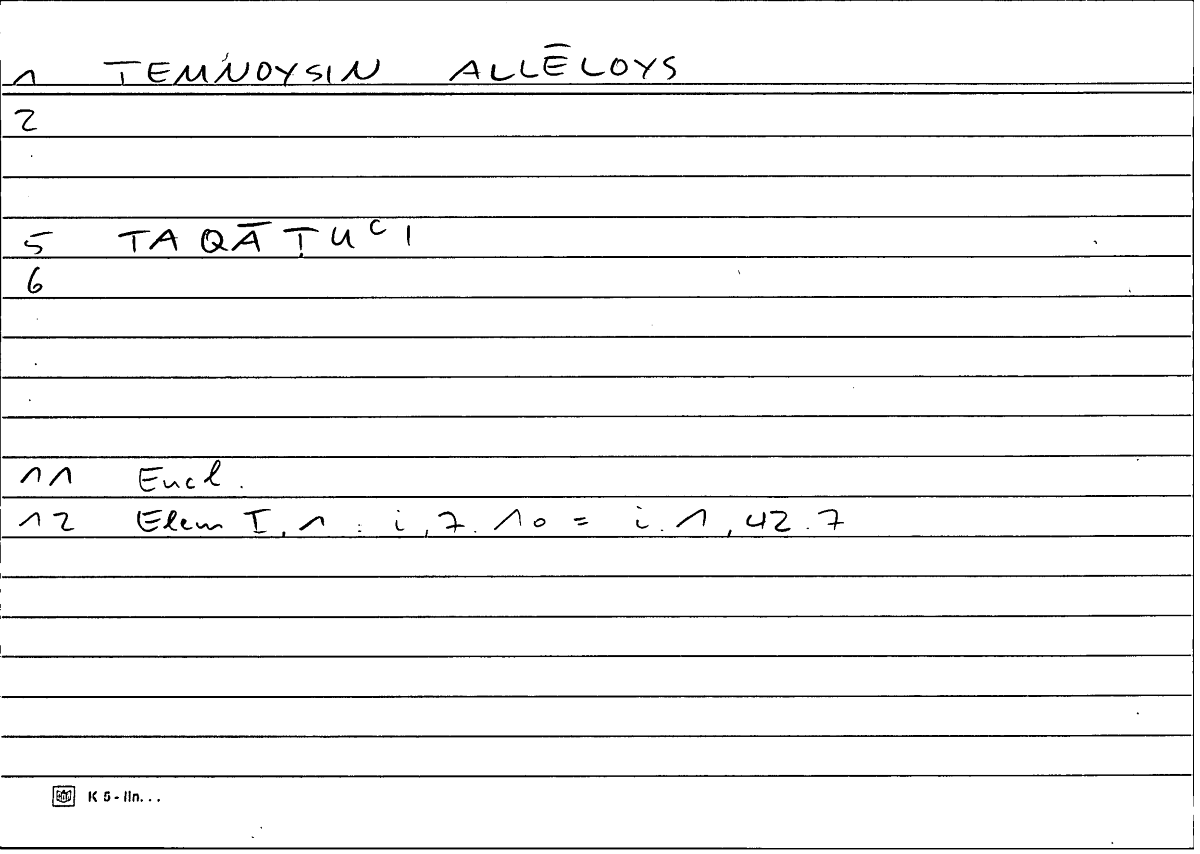 1 TEMNOYSIN ALLĒLOYS
2
5 TAQĀṬUʿI
6
11 Eucl.
12 Elem I, 1 : i, 7. 10 = i. 1, 42. 7
K 5 - lin...